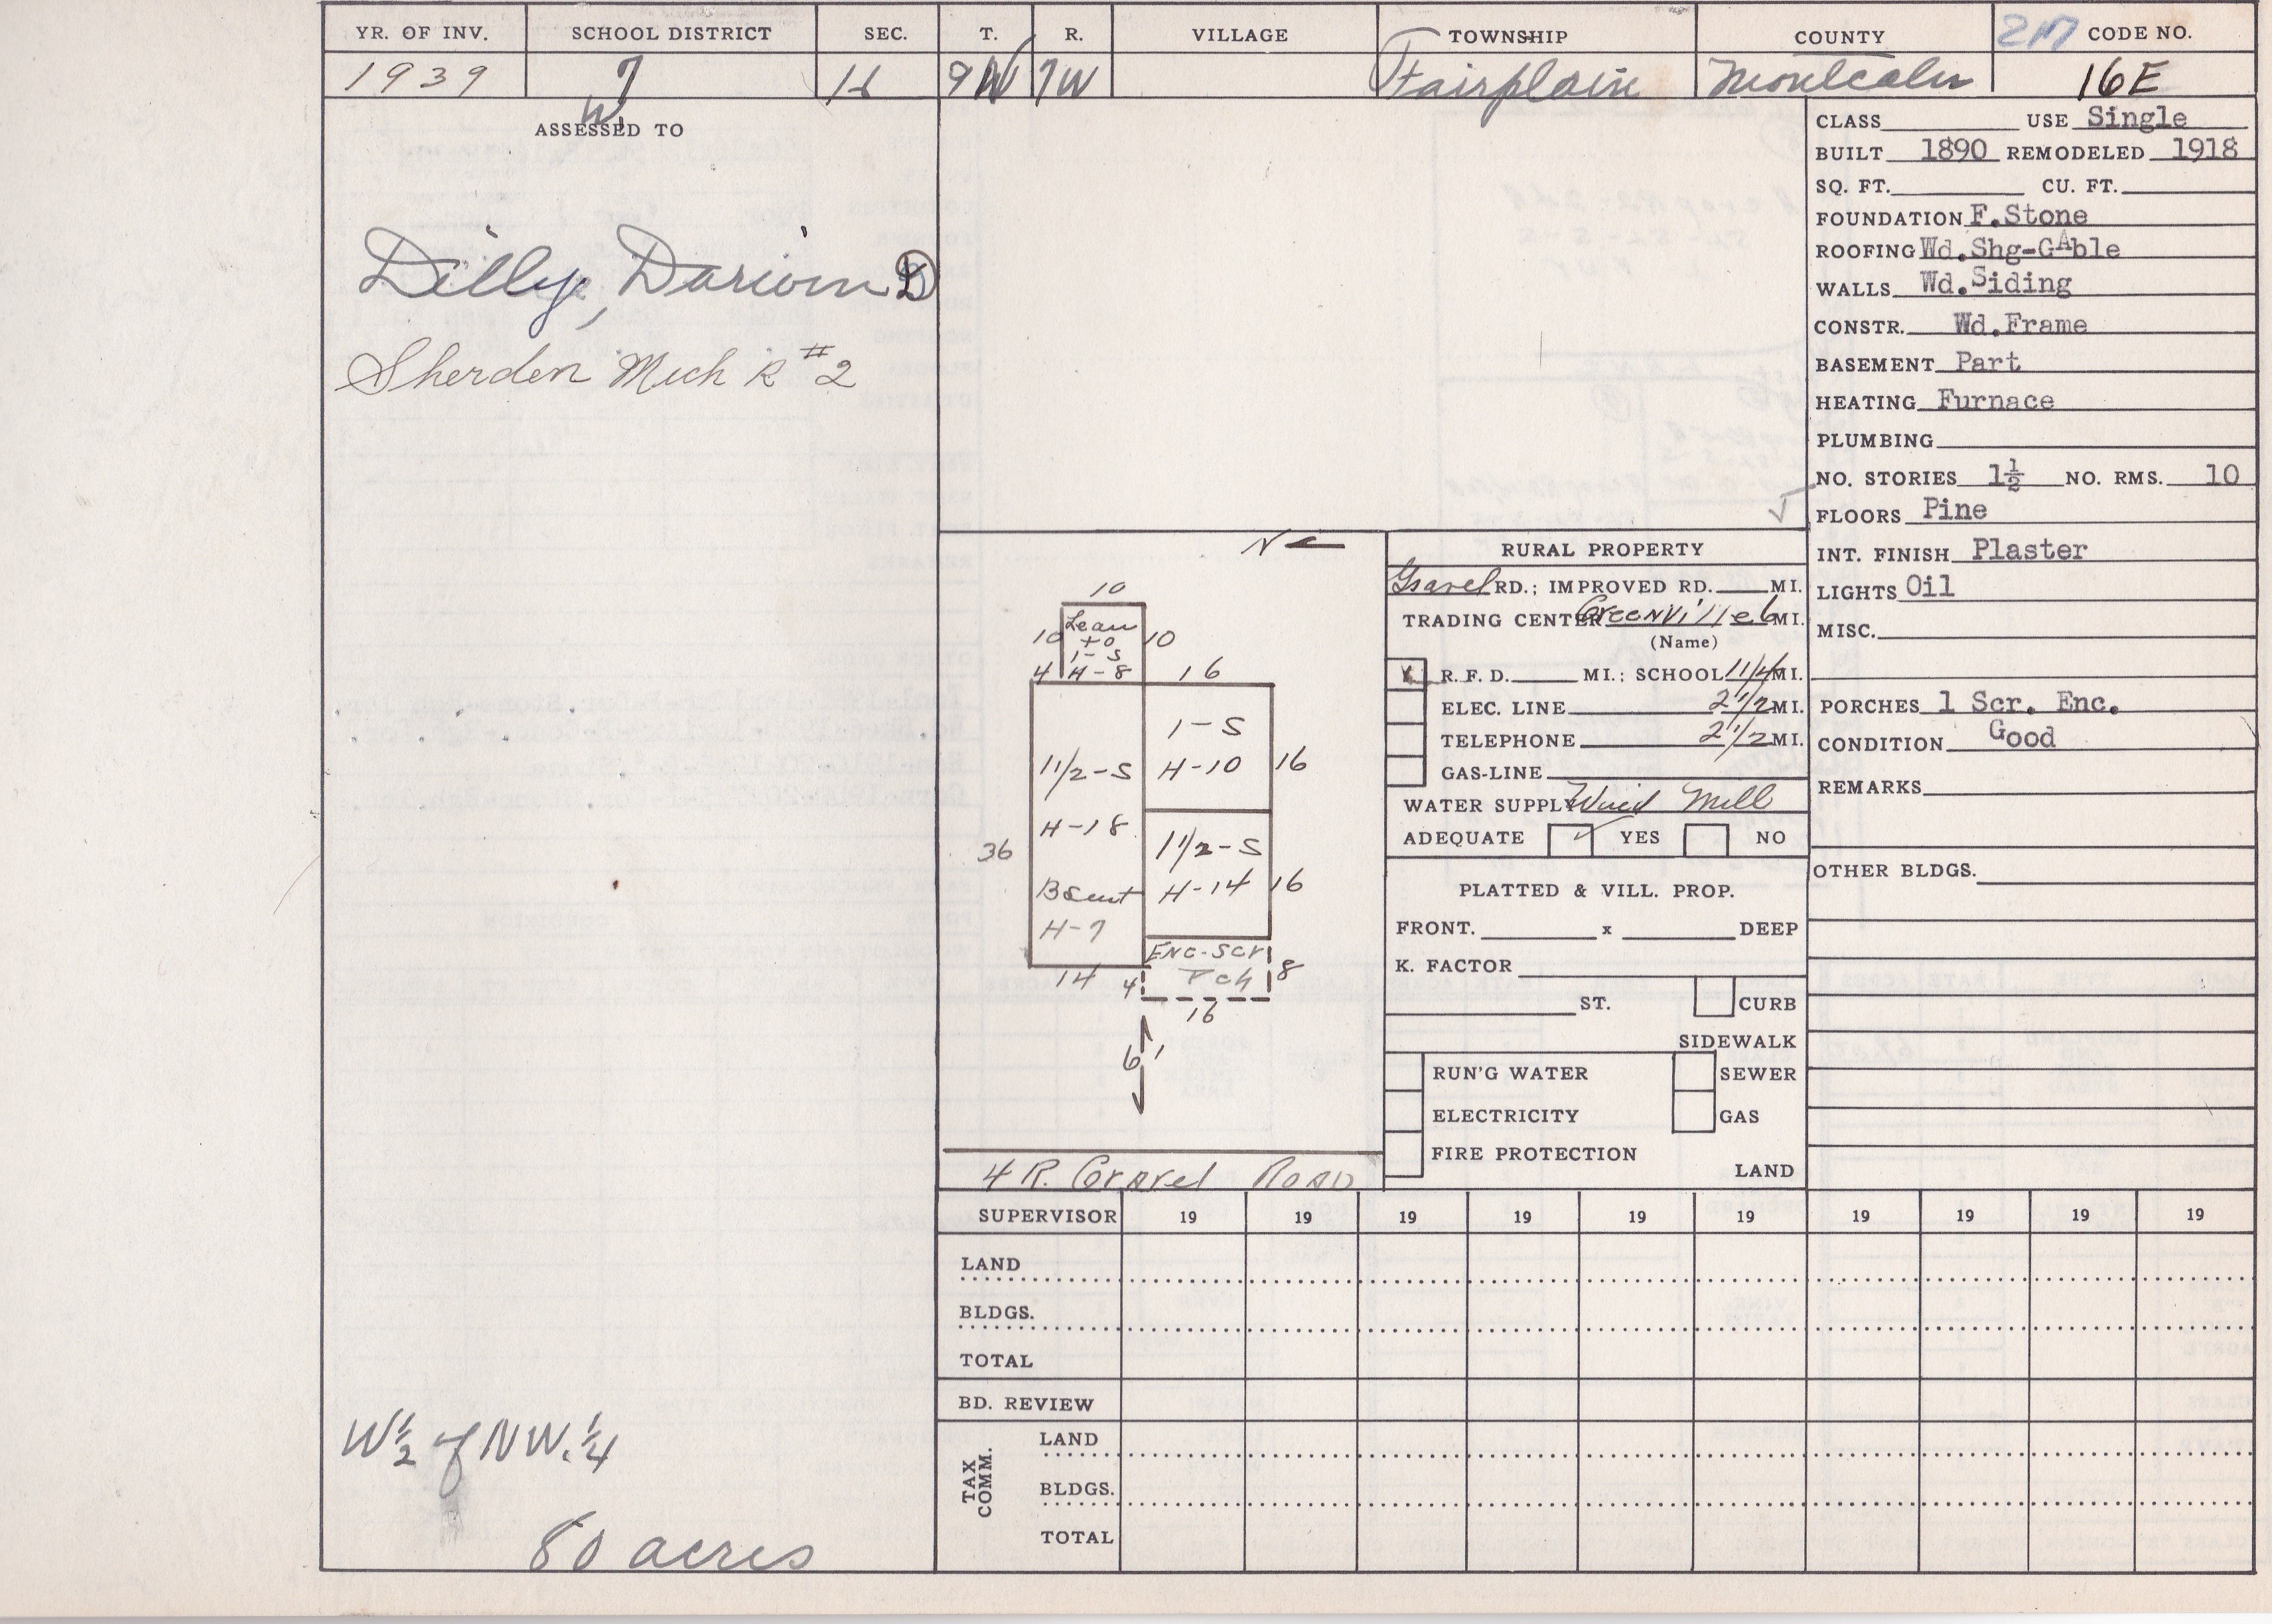 YR. OF INV. SCHOOL DISTRICT SEC. T. R. VILLAGE TOWNSHIP COUNTY CODE NO.
1939 7 9 7W Fairplain Montcalm 16E
ASSESSED TO
Dilly, D
Sherden Mich R #2
W 1/2 of NW. 1/4
80 acres
N
10
10 Lean 10
to
1-S
4 H-8 16
1-S
11/2-S H-10 16
H-18
36 11/2-S
Bsmt H-14 16
H-7
Enc-Scr
14 4 Pch 8
16
6'
4 R. Gravel Road
RURAL PROPERTY
Gravel RD.; IMPROVED RD. MI.
TRADING CENTER Greenville 6 MI.
(Name)
R. F. D. MI.; SCHOOL 11/4 MI.
ELEC. LINE 21/2 MI.
TELEPHONE 21/2 MI.
GAS-LINE
WATER SUPPLY Wind Mill
ADEQUATE ✓ YES NO
PLATTED & VILL. PROP.
FRONT. x DEEP
K. FACTOR
ST. CURB
SIDEWALK
RUN'G WATER SEWER
ELECTRICITY GAS
FIRE PROTECTION
LAND
CLASS USE Single
BUILT 1890 REMODELED 1918
SQ. FT. CU. FT.
FOUNDATION F.Stone
ROOFING Wd.Shg-GAble
WALLS Wd.Siding
CONSTR. Wd.Frame
BASEMENT Part
HEATING Furnace
PLUMBING
NO. STORIES 1½ NO. RMS. 10
FLOORS Pine
INT. FINISH Plaster
LIGHTS Oil
MISC.
PORCHES 1 Scr. Enc.
CONDITION Good
REMARKS
OTHER BLDGS.
SUPERVISOR 19 19 19 19 19 19 19 19 19 19
LAND
BLDGS.
TOTAL
BD. REVIEW
TAX COMM.
LAND
BLDGS.
TOTAL